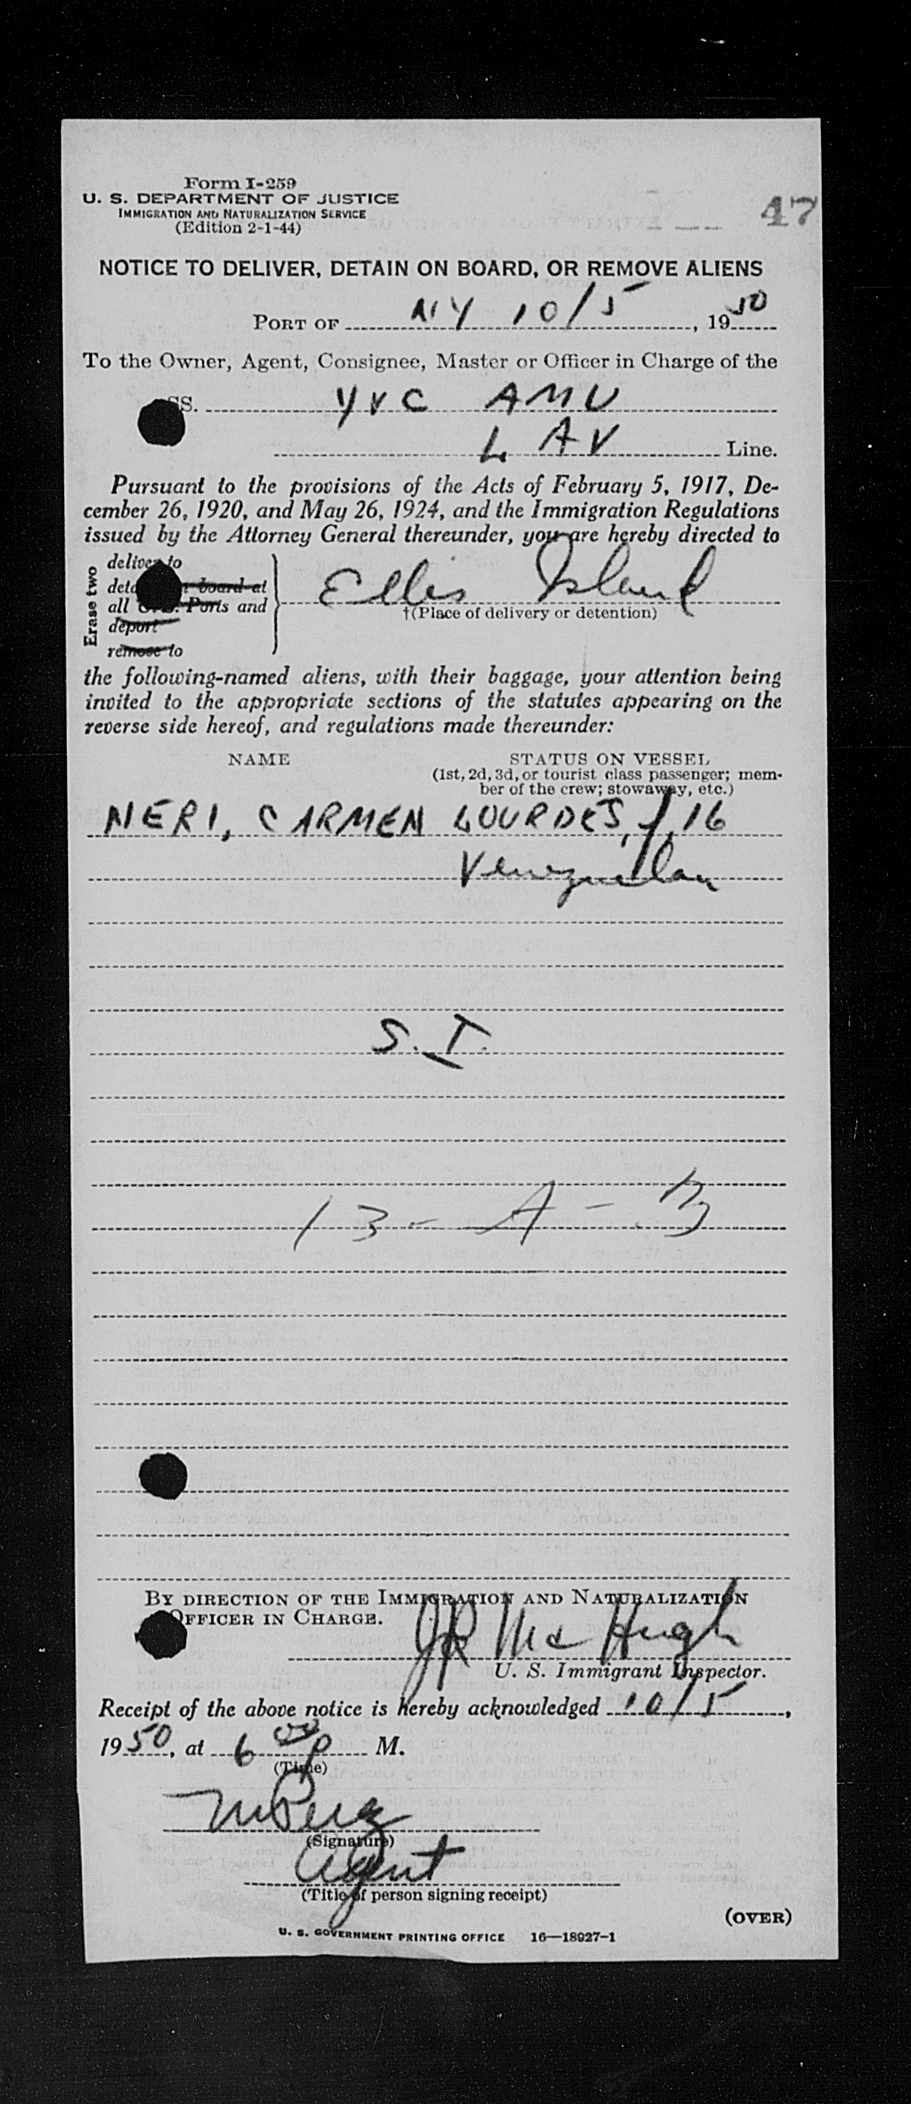 Form I-259
U. S. DEPARTMENT OF JUSTICE
IMMIGRATION AND NATURALIZATION SERVICE
(Edition 2-1-44)
47
NOTICE TO DELIVER, DETAIN ON BOARD, OR REMOVE ALIENS
PORT OF NY 10/5, 1950
To the Owner, Agent, Consignee, Master or Officer in Charge of the
SS. YVC AMU
LAV Line.
Pursuant to the provisions of the Acts of February 5, 1917, De-
cember 26, 1920, and May 26, 1924, and the Immigration Regulations
issued by the Attorney General thereunder, you are hereby directed to
Erase two
deliver to
board at
all Ports and
deport
remove to
Ellis Island
†(Place of delivery or detention)
the following-named aliens, with their baggage, your attention being
invited to the appropriate sections of the statutes appearing on the
reverse side hereof, and regulations made thereunder:
NAME STATUS ON VESSEL
(1st, 2d, 3d, or tourist class passenger; mem-
ber of the crew; stowaway, etc.)
NERI, CARMEN LOURDES, f, 16
Venezuelan
S. I.
13 - A -
BY DIRECTION OF THE IMMIGRATION AND NATURALIZATION
OFFICER IN CHARGE.
JP McHugh
U. S. Immigrant Inspector.
Receipt of the above notice is hereby acknowledged 10/5,
1950, at 6 00 p M.
(Time)
(Signature)
Agent
(Title of person signing receipt)
(OVER)
U. S. GOVERNMENT PRINTING OFFICE 16—18927-1